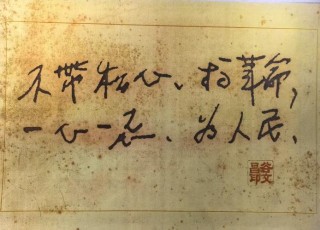 不帶私心、搞革命，
一心一意、为人民、